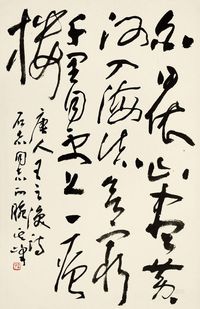 白日依山尽黄
河入海流欲穷
千里目更上一层
楼
唐人王之涣诗
同志